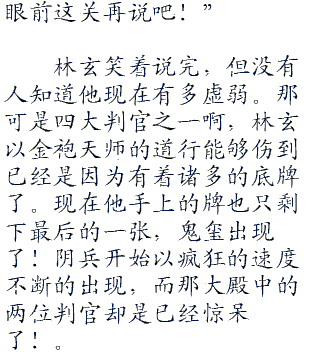 眼前这关再说吧！”
林玄笑着说完，但没有
人知道他现在有多虚弱。那
可是四大判官之一啊，林玄
以金袍天师的道行能够伤到
已经是因为有着诸多的底牌
了。现在他手上的牌也只剩
下最后的一张，鬼玺出现
了！阴兵开始以疯狂的速度
不断的出现，而那大殿中的
两位判官却是已经惊呆
了！。